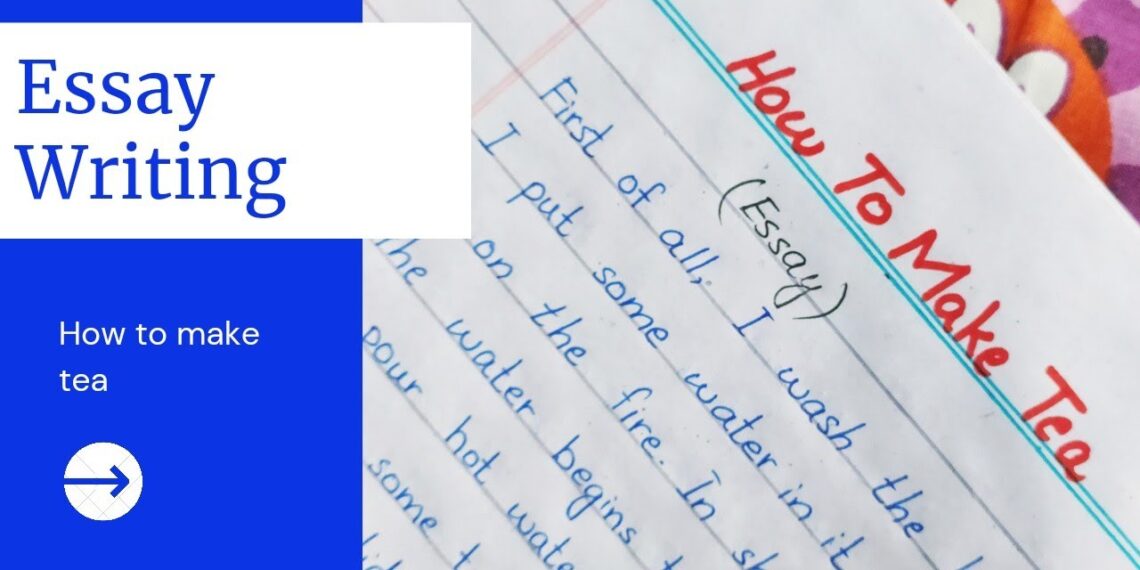 Essay
Writing
How to make
tea
How To Make Tea
(Essay)
First of all, I wash the
I put some water in it
on the fire. In
the water begins
pour hot
some